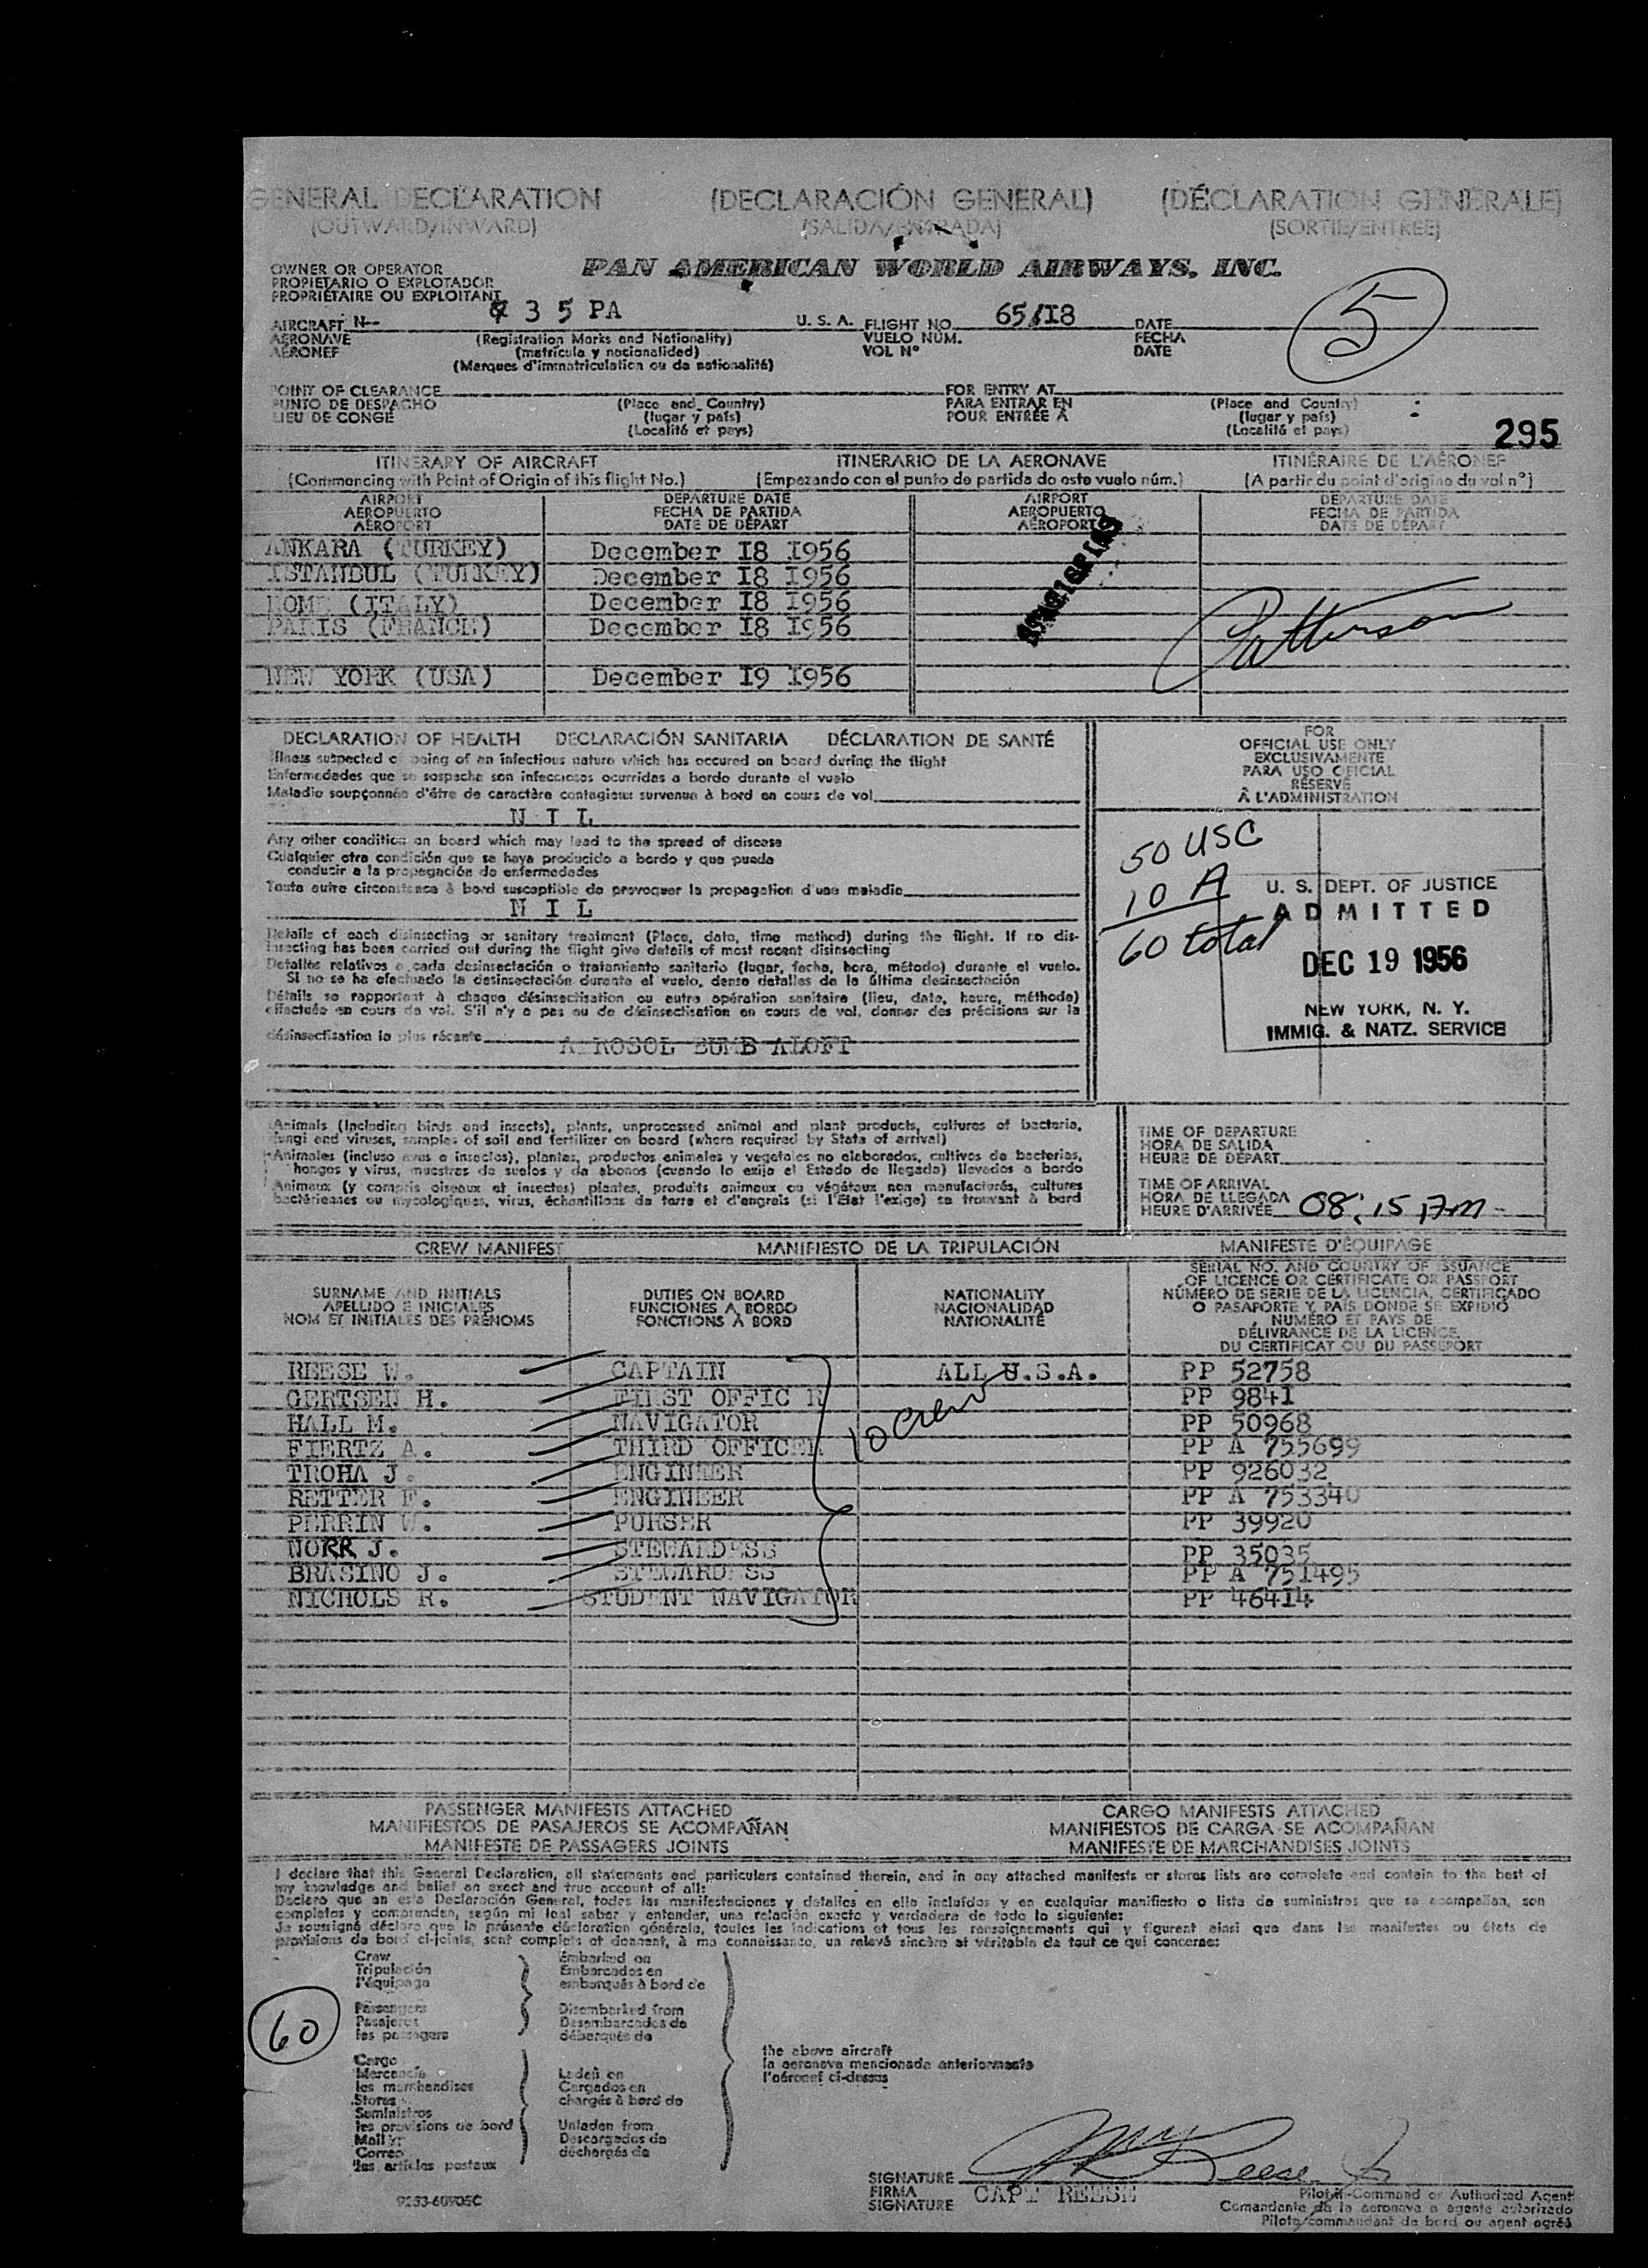 GENERAL DECLARATION (DECLARACIÓN GENERAL) (DÉCLARATION GÉNÉRALE)
(OUTWARD/INWARD) (SALIDA/ENTRADA) (SORTIE/ENTRÉE)
OWNER OR OPERATOR PAN AMERICAN WORLD AIRWAYS, INC.
PROPIETARIO O EXPLOTADOR
PROPRIÉTAIRE OU EXPLOITANT
AIRCRAFT N-- 735 PA U. S. A. FLIGHT NO. 65/I8 DATE 5
AERONAVE (Registration Marks and Nationality) VUELO NÚM. FECHA
AÉRONEF (matrícula y nacionalidad) VOL N° DATE
(Marques d'immatriculation ou de nationalité)
POINT OF CLEARANCE FOR ENTRY AT
PUNTO DE DESPACHO (Place and Country) PARA ENTRAR EN (Place and Country)
LIEU DE CONGÉ (lugar y país) POUR ENTRÉE À (lugar y país)
(Localité et pays) (Localité et pays)
295
ITINERARY OF AIRCRAFT ITINERARIO DE LA AERONAVE ITINÉRAIRE DE L'AÉRONEF
(Commencing with Point of Origin of this flight No.) (Empezando con el punto de partida de este vuelo núm.) (A partir du point d'origine du vol n°)
AIRPORT DEPARTURE DATE AIRPORT DEPARTURE DATE
AEROPUERTO FECHA DE PARTIDA AEROPUERTO FECHA DE PARTIDA
AÉROPORT DATE DE DÉPART AÉROPORT DATE DE DÉPART
ANKARA (TURKEY) December I8 I956
ISTANBUL (TURKEY) December I8 I956
ROME (ITALY) December I8 I956
PARIS (FRANCE) December I8 I956
Patterson
NEW YORK (USA) December I9 I956
DECLARATION OF HEALTH DECLARACIÓN SANITARIA DÉCLARATION DE SANTÉ
Illness suspected of being of an infectious nature which has occured on board during the flight
Enfermedades que se sospecha son infecciosas ocurridas a bordo durante el vuelo
Maladie soupçonnée d'être de caractère contagieux survenue à bord en cours de vol
N I L
Any other condition on board which may lead to the spread of disease
Cualquier otra condición que se haya producido a bordo y que pueda
conducir a la propagación de enfermedades
Toute autre circonstance à bord susceptible de provoquer la propagation d'une maladie
N I L
Details of each disinsecting or sanitary treatment (Place, date, time method) during the flight. If no dis-
insecting has been carried out during the flight give details of most recent disinsecting
Detalles relativos a cada desinsectación o tratamiento sanitario (lugar, fecha, hora, método) durante el vuelo.
Si no se ha efectuado la desinsectación durante el vuelo, dense detalles de la última desinsectación
Détails se rapportant à chaque désinsectisation ou autre opération sanitaire (lieu, date, heure, méthode)
effectuée en cours de vol. S'il n'y a pas eu de désinsectisation en cours de vol, donner des précisions sur la
désinsectisation la plus récente AEROSOL BUMB ALOFT
FOR
OFFICIAL USE ONLY
EXCLUSIVAMENTE
PARA USO OFICIAL
RÉSERVÉ
À L'ADMINISTRATION
50 USC
10 A
60 total
U. S. DEPT. OF JUSTICE
ADMITTED
DEC 19 1956
NEW YORK, N. Y.
IMMIG. & NATZ. SERVICE
Animals (Including birds and insects), plants, unprocessed animal and plant products, cultures of bacteria,
fungi and viruses, samples of soil and fertilizer on board (where required by State of arrival)
Animales (incluso aves e insectos), plantas, productos animales y vegetales no elaborados, cultivos de bacterias,
hongos y virus, muestras de suelos y de abonos (cuando lo exija el Estado de llegada) llevados a bordo
Animaux (y compris oiseaux et insectes) plantes, produits animaux ou végétaux non manufacturés, cultures
bactériennes ou mycologiques, virus, échantillons de terre et d'engrais (si l'État l'exige) se trouvant à bord
TIME OF DEPARTURE
HORA DE SALIDA
HEURE DE DÉPART
TIME OF ARRIVAL
HORA DE LLEGADA
HEURE D'ARRIVÉE 08:15 AM
CREW MANIFEST MANIFIESTO DE LA TRIPULACIÓN MANIFESTE D'ÉQUIPAGE
SURNAME AND INITIALS
APELLIDO E INICIALES
NOM ET INITIALES DES PRÉNOMS
DUTIES ON BOARD
FUNCIONES A BORDO
FONCTIONS À BORD
NATIONALITY
NACIONALIDAD
NATIONALITÉ
SERIAL NO. AND COUNTRY OF ISSUANCE
OF LICENCE OR CERTIFICATE OR PASSPORT
NÚMERO DE SERIE DE LA LICENCIA, CERTIFICADO
O PASAPORTE Y PAÍS DONDE SE EXPIDIÓ
NUMÉRO ET PAYS DE
DÉLIVRANCE DE LA LICENCE,
DU CERTIFICAT OU DU PASSEPORT
REESE W. CAPTAIN ALL U.S.A. PP 52758
GERTSEN H. FIRST OFFIC R PP 9841
HALL M. NAVIGATOR 10 crew PP 50968
FIERTZ A. THIRD OFFICER PP A 755699
TROHA J. ENGINEER PP 926032
RETTER F. ENGINEER PP A 753340
PERRIN W. PURSER PP 39920
NORR J. STEWARDESS PP 35035
BRASINO J. STEWARDESS PP A 751495
NICHOLS R. STUDENT NAVIGATOR PP 46414
PASSENGER MANIFESTS ATTACHED CARGO MANIFESTS ATTACHED
MANIFIESTOS DE PASAJEROS SE ACOMPAÑAN MANIFIESTOS DE CARGA SE ACOMPAÑAN
MANIFESTE DE PASSAGERS JOINTS MANIFESTE DE MARCHANDISES JOINTS
I declare that this General Declaration, all statements and particulars contained therein, and in any attached manifests or stores lists are complete and contain to the best of
my knowledge and belief an exact and true account of all:
Declaro que en esta Declaración General, todas las manifestaciones y detalles en ella incluídos y en cualquier manifiesto o lista de suministros que se acompañan, son
completos y comprenden, según mi leal saber y entender, una relación exacta y verdadera de todo lo siguiente:
Je soussigné déclare que la présente déclaration générale, toutes les indications et tous les renseignements qui y figurent ainsi que dans les manifestes ou états de
provisions de bord ci-joints, sont complets et donnent, à ma connaissance, un relevé sincère et véritable de tout ce qui concerne:
Crew
Tripulación
l'équipage
Passengers
Pasajeros
les passagers
Embarked on
Embarcados en
embarqués à bord de
Disembarked from
Desembarcados de
débarqués de
60
Cargo
Mercancía
les marchandises
Stores
Suministros
les provisions de bord
Mail
Correo
les articles postaux
Laden on
Cargados en
chargés à bord de
Unladen from
Descargados de
déchargés de
the above aircraft
la aeronave mencionada anteriormente
l'aéronef ci-dessus
SIGNATURE Reese Jr
FIRMA CAPT REESE
SIGNATURE
Pilot-in-Command or Authorized Agent
Comandante de la aeronave o agente autorizado
Pilote/commandant de bord ou agent agréé
9233-60905C